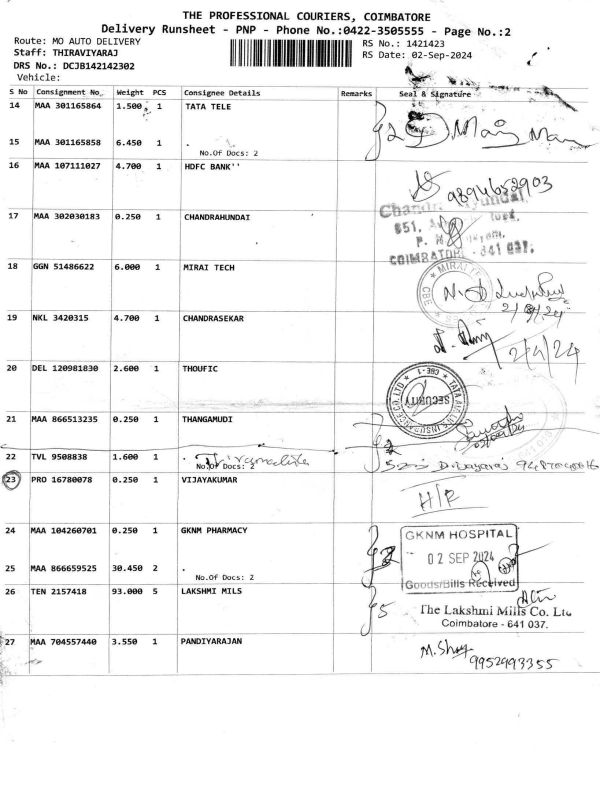 THE PROFESSIONAL COURIERS, COIMBATORE
Delivery Runsheet - PNP - Phone No.:0422-3505555 - Page No.:2
Route: MO AUTO DELIVERY RS No.: 1421423
Staff: THIRAVIYARAJ RS Date: 02-Sep-2024
DRS No.: DCJB142142302
Vehicle:
S No Consignment No. Weight PCS Consignee Details Remarks Seal & Signature
14 MAA 301165864 1.500 1 TATA TELE
15 MAA 301165858 6.450 1 .
No.Of Docs: 2
16 MAA 107111027 4.700 1 HDFC BANK''
9894652903
17 MAA 302030183 0.250 1 CHANDRAHUNDAI
COIMBATORE - 641 037.
18 GGN 51486622 6.000 1 MIRAI TECH
MIRAI
CBE
19 NKL 3420315 4.700 1 CHANDRASEKAR
20 DEL 120981830 2.600 1 THOUFIC
TATA AIA LIFE INSURANCE CO. LTD
CBE-1
SECURITY
21 MAA 866513235 0.250 1 THANGAMUDI
22 TVL 9508838 1.600 1 .
No.Of Docs: 2
23 PRO 16780078 0.250 1 VIJAYAKUMAR
H/R
24 MAA 104260701 0.250 1 GKNM PHARMACY
GKNM HOSPITAL
02 SEP 2024
Goods/Bills Received
25 MAA 866659525 30.450 2 .
No.Of Docs: 2
26 TEN 2157418 93.000 5 LAKSHMI MILS
5
The Lakshmi Mills Co. Ltd
Coimbatore - 641 037.
27 MAA 704557440 3.550 1 PANDIYARAJAN
9952993355